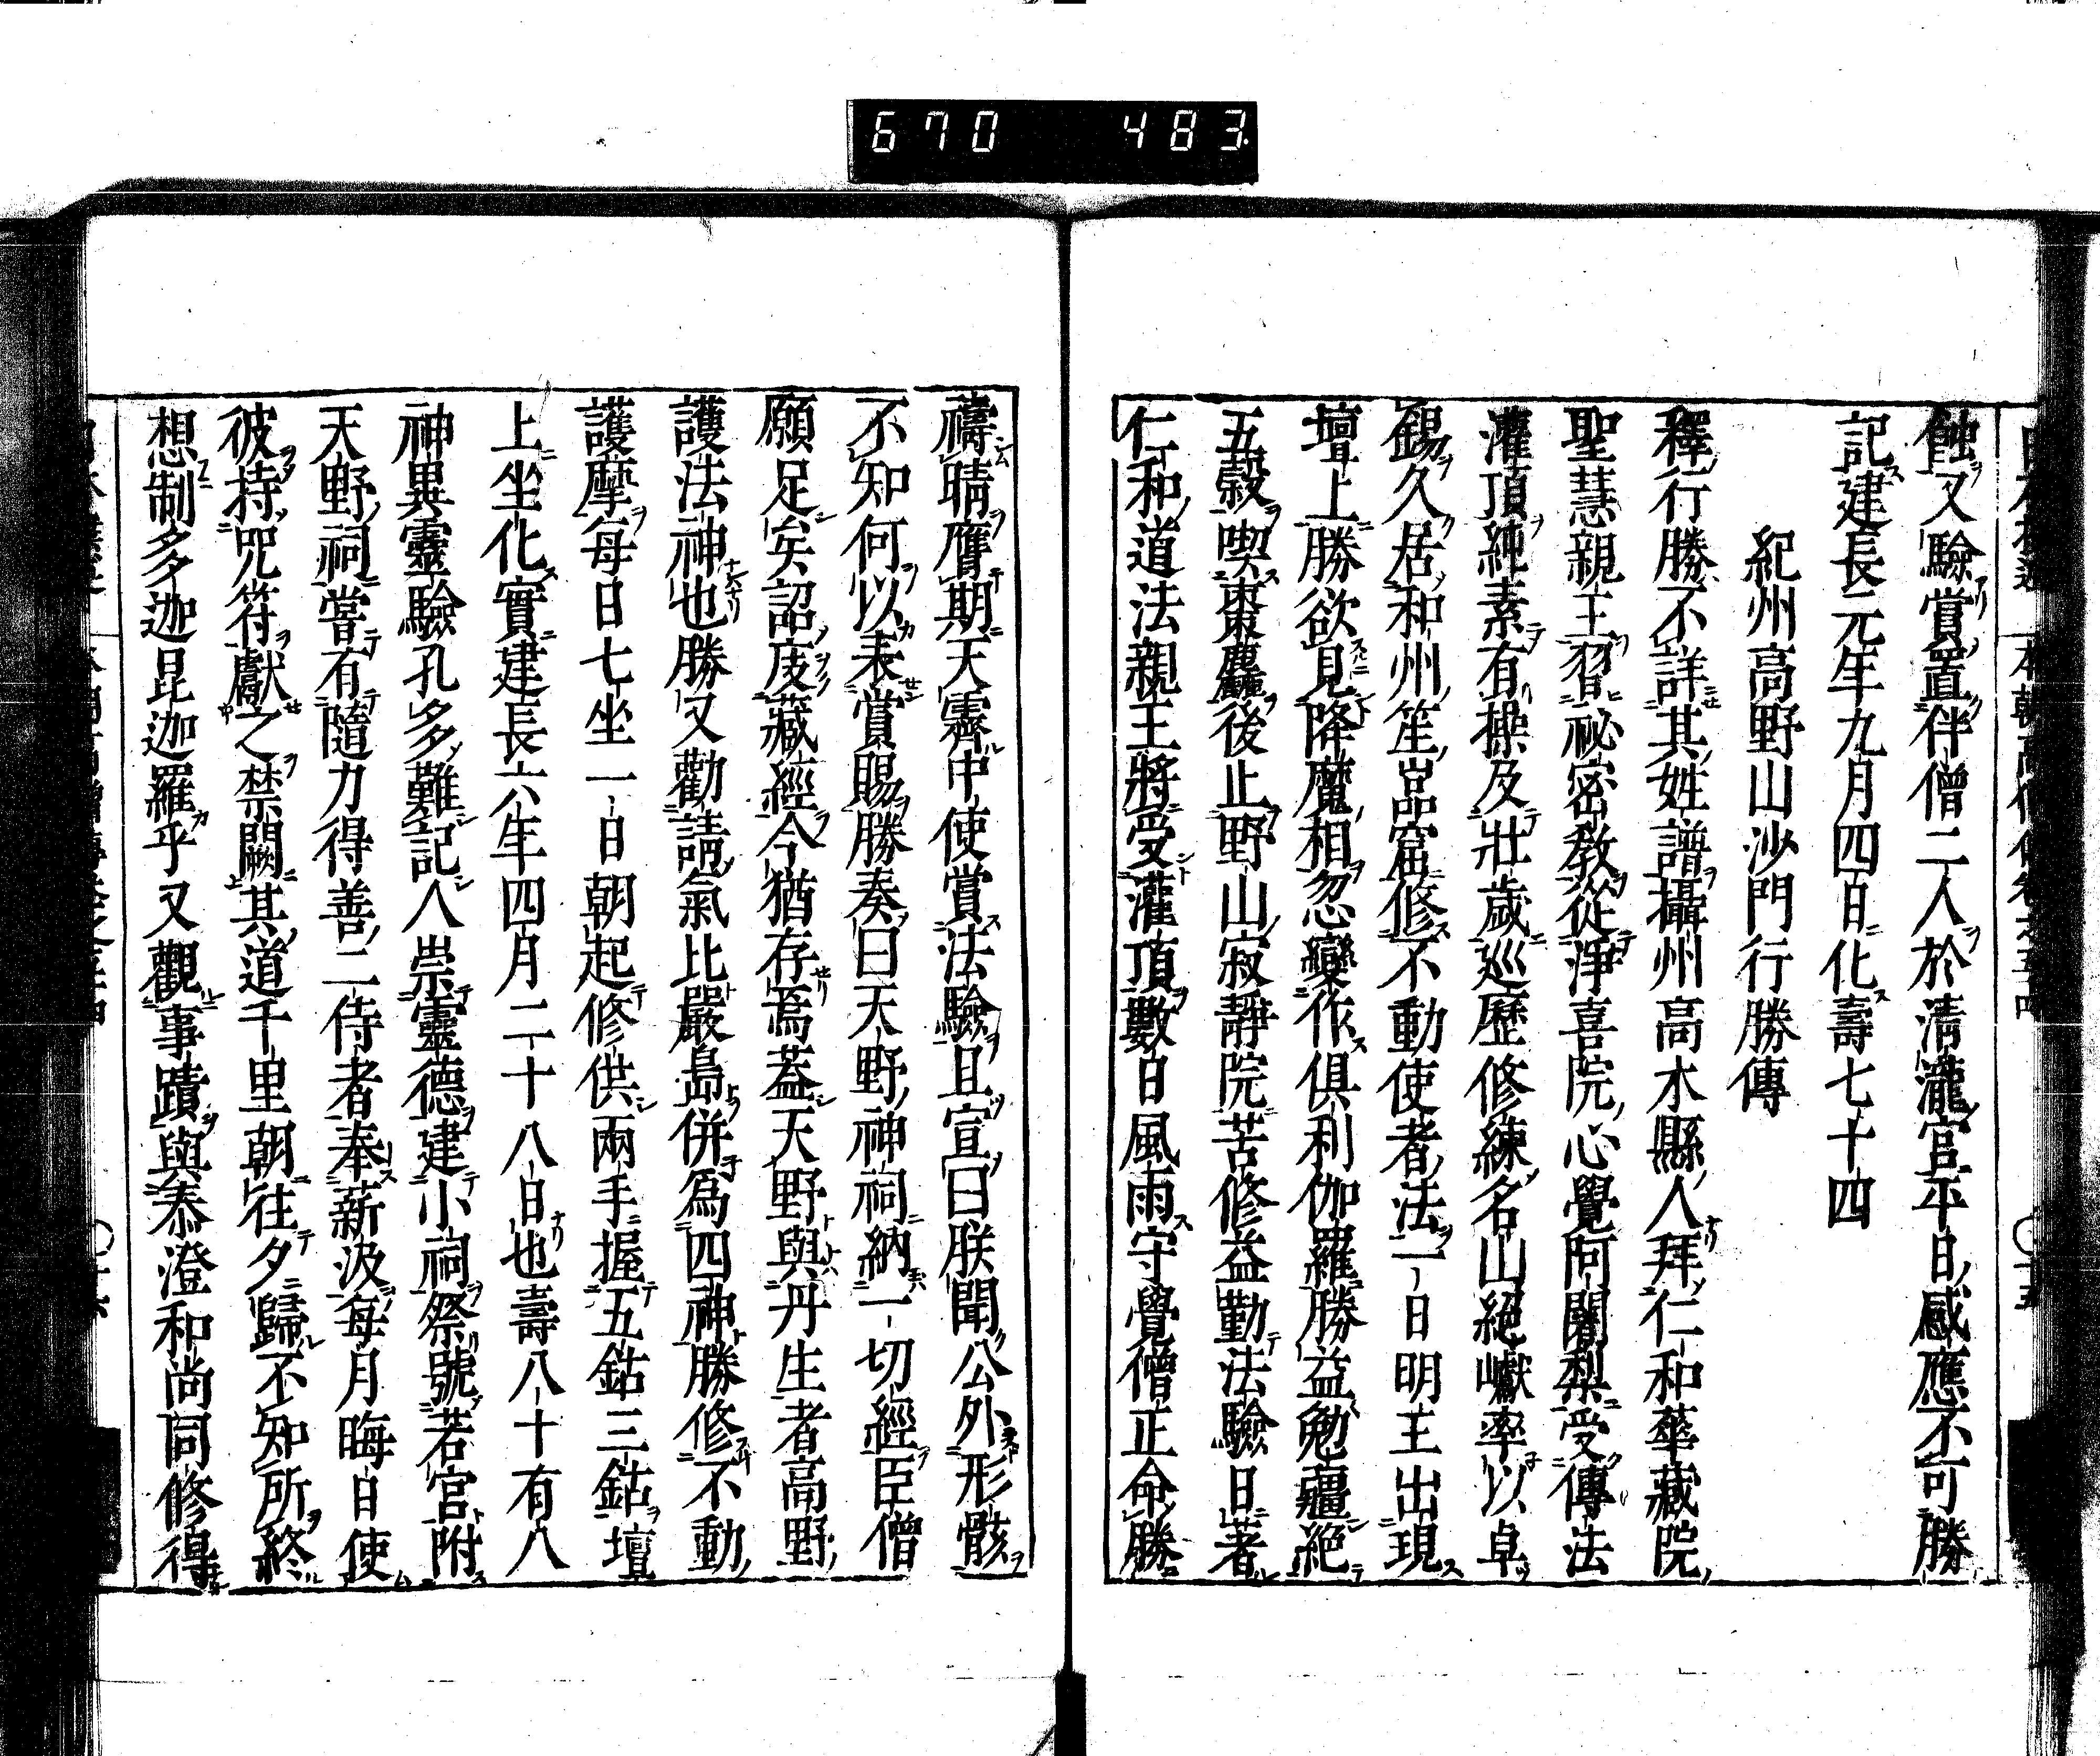 670 483
蝕又驗賞置伴僧二人於清瀧宮平日感應不可勝
記建長元年九月四日化壽七十四
紀州高野山沙門行勝傳
釋行勝不詳其姓譜攝州高木縣人拜仁和華藏院
聖慧親王習祕密教從淨喜院心覺阿闍梨受傳法
灌頂純素有操及壯歲巡歷修練名山絕巘率以卓
錫久居和州笙嵓窟修不動使者法一日明王出現
壇上勝欲見降魔相忽變作俱利伽羅勝益勉彊絕
五穀喫棗麤後止野山寂靜院苦修益勤法驗日著
仁和道法親王將受灌頂數日風雨守覺僧正命勝
禱晴膺期天霽中使賞法驗且宣曰朕聞公外形骸
不知何以表賞賜勝奏曰天野神祠納一切經臣僧
願足矣詔庋藏經今猶存焉蓋天野與丹生者高野
護法神也勝又勸請氣比嚴島併爲四神勝修不動
護摩每日七坐一日朝起修供兩手握五鈷三鈷壇
上坐化實建長六年四月二十八日也壽八十有八
神異靈驗孔多難記人崇靈德建小祠祭號若宮附
天野祠當有隨力得善二侍者奉薪汲每月晦日使
彼持咒符獻之禁闕其道千里朝往夕歸不知所終
想制多迦昆迦羅乎又觀事蹟與泰澄和尚同修得